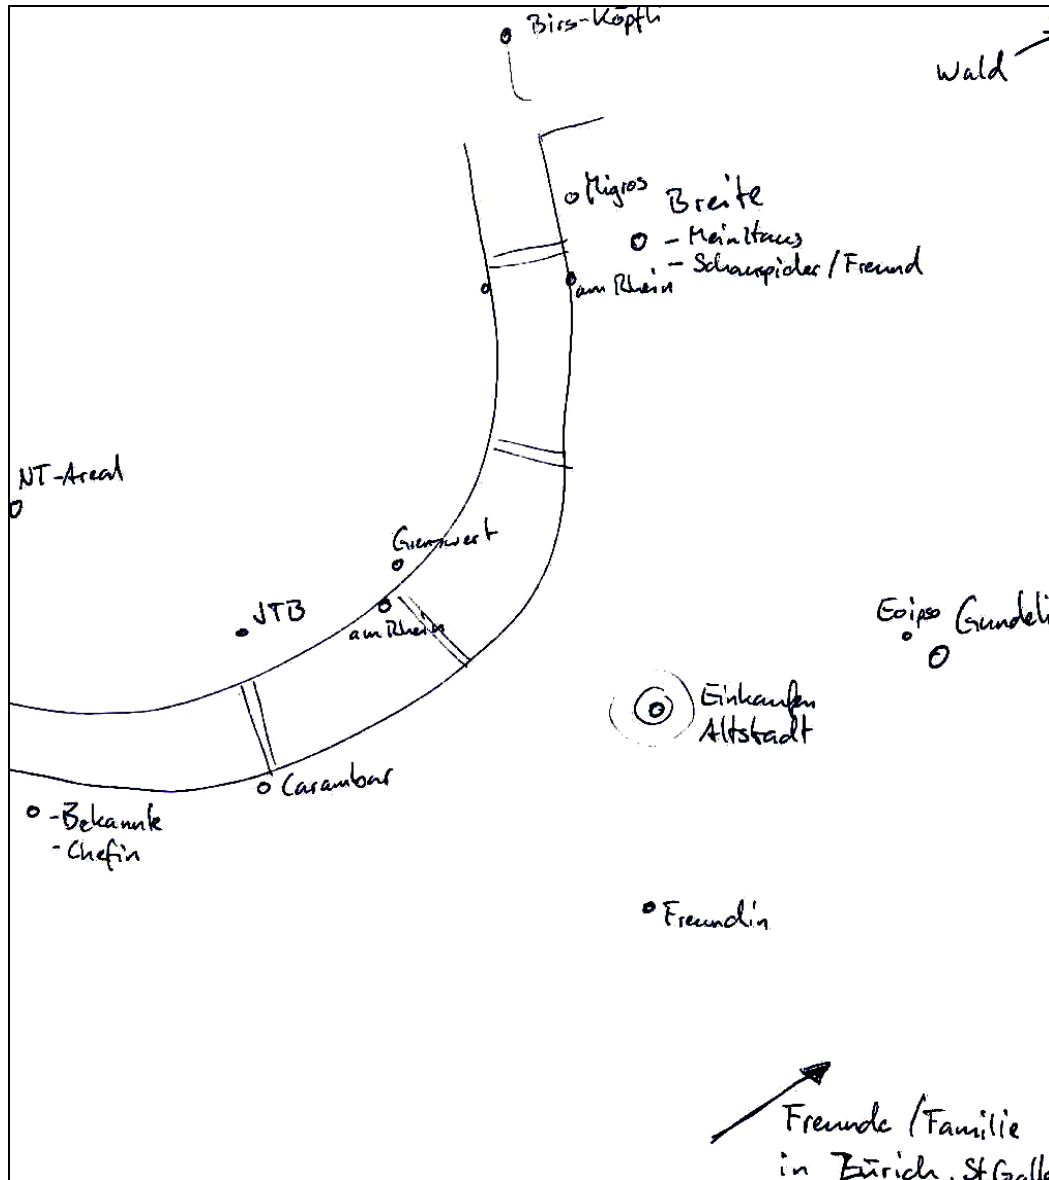 Birs-Köpfli
Wald
Migros
Breite
- Mein Haus
- Schauspieler / Freund
am Rhein
NT-Areal
Grenzwert
JTB
am Rhein
Eoipso Gundeli
Einkaufen
Altstadt
Carambar
- Bekannte
- Chefin
Freundin
Freunde / Familie
in Zürich, St. Galle